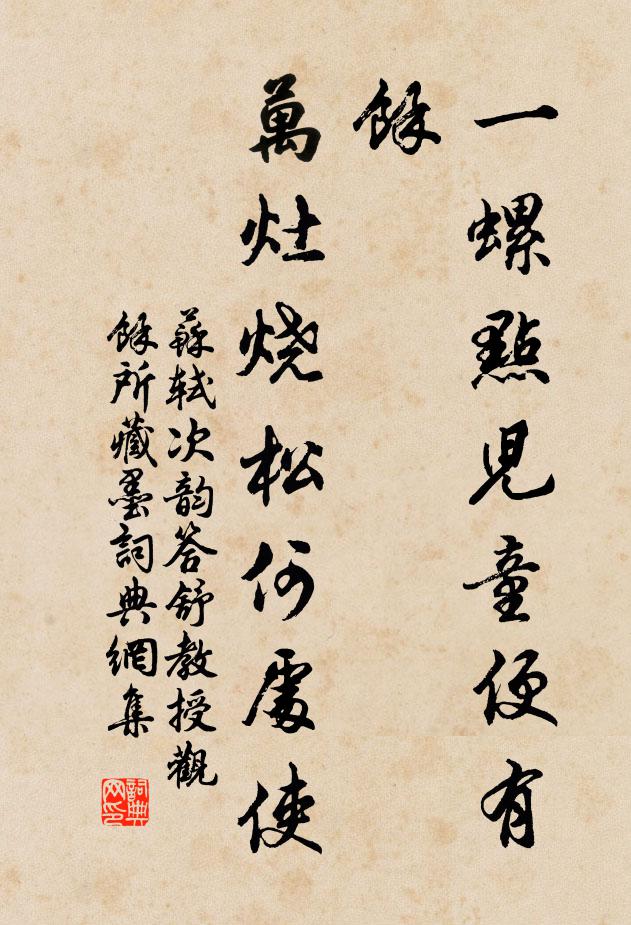 一螺點兒童便有
餘
萬灶燒松何處使
蘇軾次韵答舒教授觀
餘所藏墨詞典網集
詞典
网印